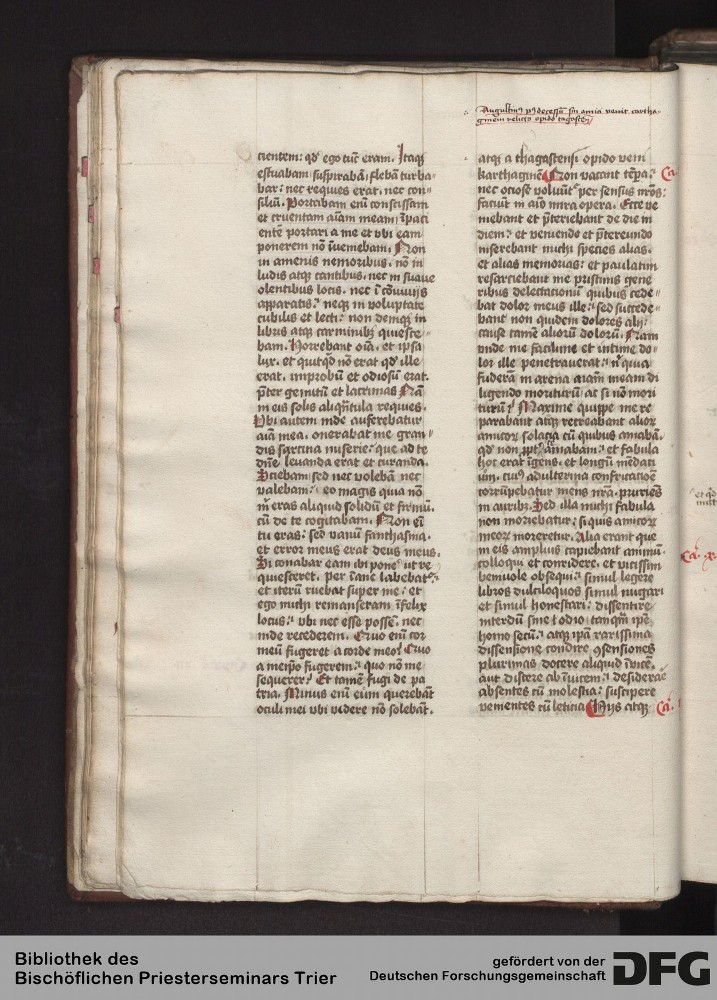 Augustinus post decessum sui amici venit cartha-
ginem relicto opido tagosten
cientem: qd ego tūc eram. Itaqȝ
estuabam suspirabā flebā turba-
bar: nec requies erat, nec con-
siliū. Portabam enī conscissam
et cruentam aīam meam īpaci
entē portari a me et vbi eam
ponerem nō īuemebam. Non
in amenis nemoribus. nō in
ludis atqȝ cantibus. nec in suaue
olentibus locis. nec ī cōuiuijs
apparatis: neqȝ in voluptate
cubilis et lecti: non deniqȝ in
libris atqȝ carminibȝ quiesce-
bam. Horrebant oīa. et ipsa
lux. et quitqd nō erat qd ille
erat. improbū et odiosū erat.
pter gemitū et lacrimas Nā
in eis solis aliqntula requies.
Vbi autem inde auferebatur
aīa mea. onerabat me gran-
dis sarcina miserie: que ad te
dnē leuanda erat et curanda.
Sciebam sed nec volebā nec
valebam: eo magis quia nō
m eras aliquid solidū et firmū.
cū de te cogitabam. Non eī
tu eras: sed vanū fanthasma.
et error meus erat deus meus.
Si conabar eam ibi ponē ut re
quiesceret. per īane labebat
et iterū ruebat super me: et
ego michi remanseram īfelix
locus: vbi nec esse possē. nec
inde recederem. Quo enī cor
meū fugeret a corde meo? Quo
a meipo fugerem: quo nō me
sequerer? Et tamē fugi de pa
tria. Minus enī eum querebāt
oculi mei vbi videre nō solebāt.
atqȝ a thagastensi opido veni
karthaginē Non vacant tēpa: Ca.
nec ociose voluūt per sensus nrōs:
faciūt in aīo mira opera. Ecce ve
niebant et pteriebant de die in
diem: et veniendo et ptereundo
inserebant michi species alias.
et alias memorias: et paulatim
resarciebant me pristinis gene
ribus delectationū quibus cede-
bat dolor meus ille: sed succede-
bant non quidem dolores alij:
cause tamē aliorū dolorū. Nam
vnde me facilime et intime do-
lor ille penetrauerat: n quia
fuderā in arena aīam meam di
ligendo moriturū ac si nō mori
turū? Maxime quippe me re
parabant atqȝ recreabant alior
amicor solacia cū quibus amabā.
qd non ppt amabam: et fabula
hoc erat īgens. et longū mēdaci
um. cuiȝ adulterina confricatiōe
corrūpebatur mens nrā. pruriēs
in auribȝ. Sed illa michi fabula
non moriebatur: si quis amicor
meor moreretur. Alia erant que
in eis amplius capiebant animū.
colloqui et conridere. et vicissim
beniuole obsequi: simul legere
libros dulciloquos simul nugari
et simul honestari: dissentire
interdū sine odio tanqm ipē
homo secū: atqȝ ipā rarissima
dissensione condire ꝯsensiones
plurimas. docere aliquid īuicē.
aut discere ab īuicem: desiderare
absentes cū molestia: suscipere
venientes cū leticia Hijs atqȝ Ca.
Ca. x
Bibliothek des
Bischöflichen Priesterseminars Trier
gefördert von der
Deutschen Forschungsgemeinschaft
DFG